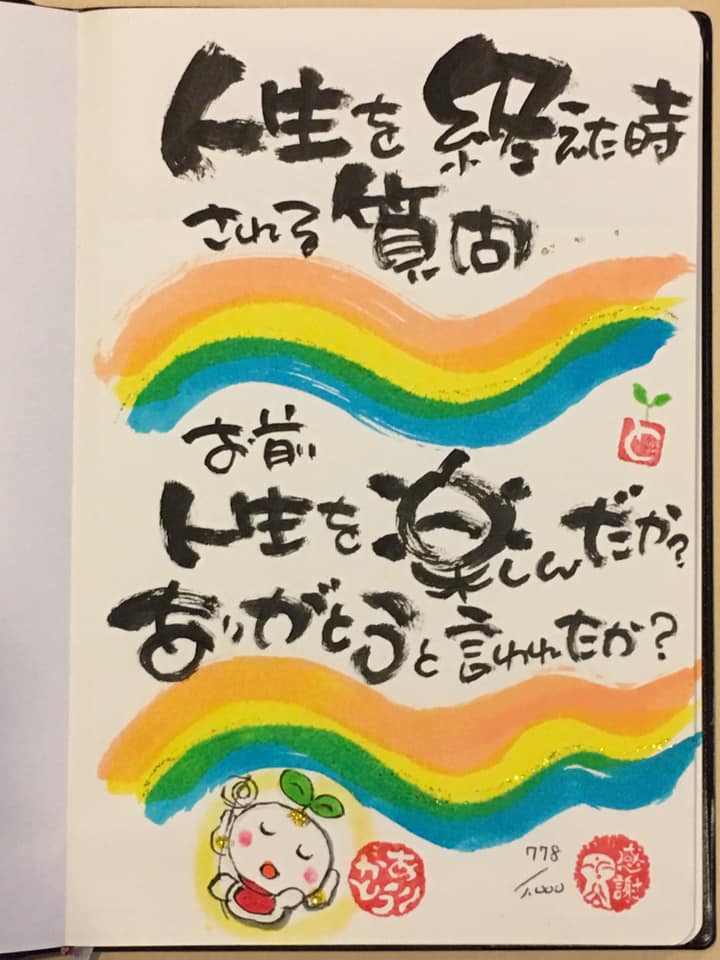 人生を終えた時
される質問…
お前
人生を楽しんだか?
ありがとうと言われたか?
ありがとう
778
/1,000
感謝